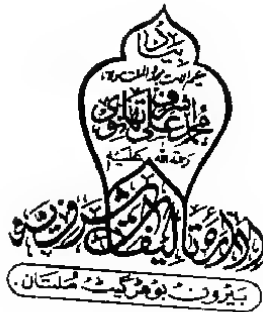 بیاد
حکیم الامت مجدد الملت حضرت مولانا
محمد اشرف علی تھانوی
رحمة الله علیہ
ادارہ تالیفات اشرفیہ
بیرون بوھڑ گیٹ مُلتان